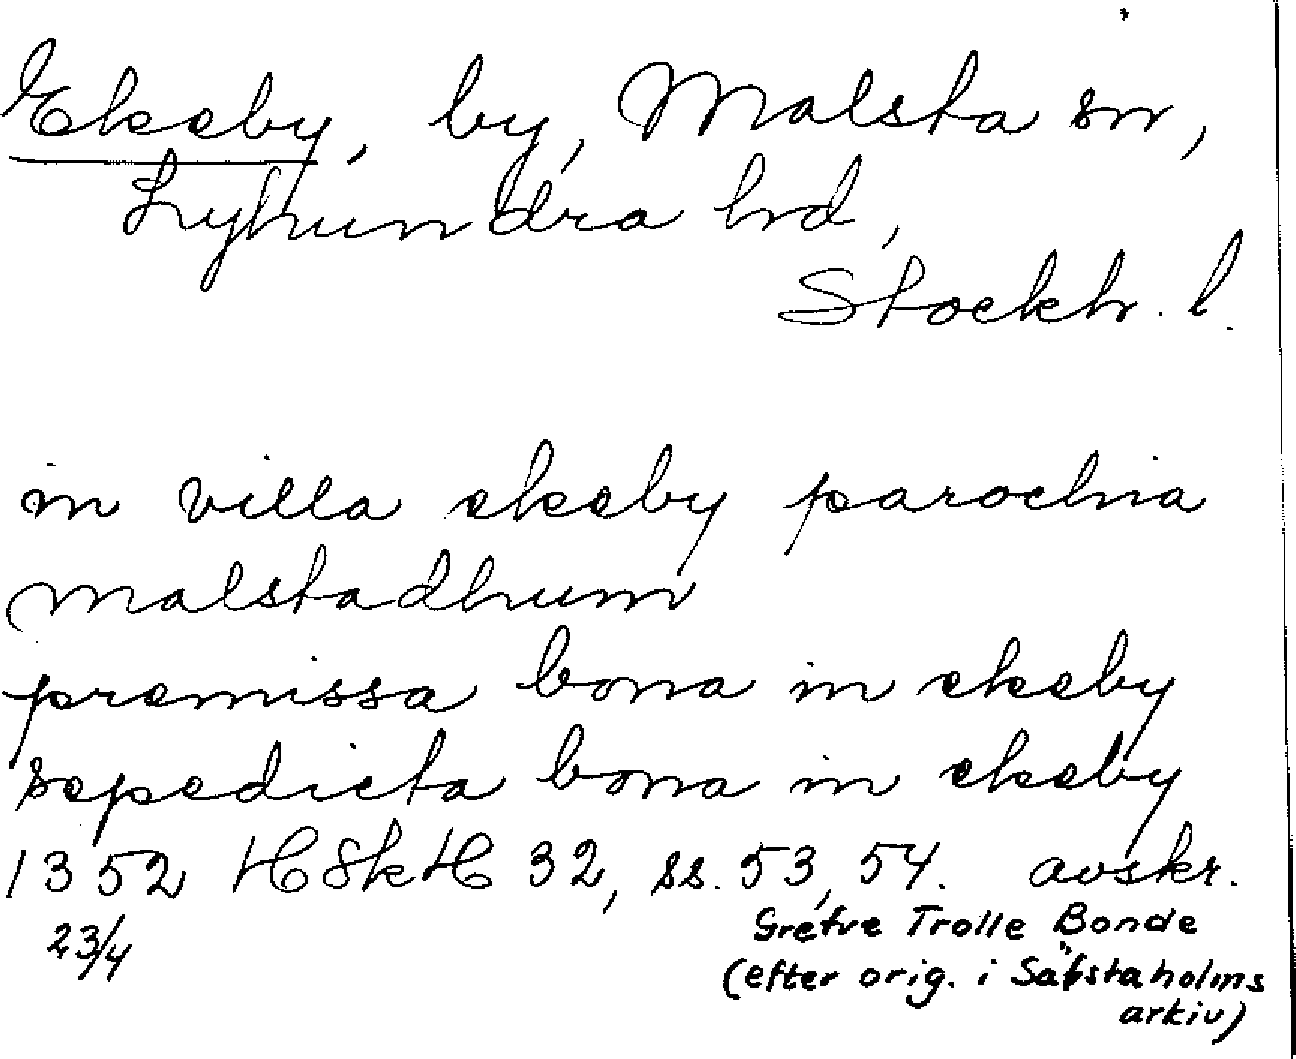 Ekeby, by, Malsta sn,
Lyhundra hd,
Stockh. l.
in villa ekeby parochia
malstadhum
premissa bona in ekeby
sepedicta bona in ekeby
1352 HSkH 32, ss. 53, 54. avskr.
23/4
Grefve Trolle Bonde
(efter orig. i Säfstaholms
arkiv)